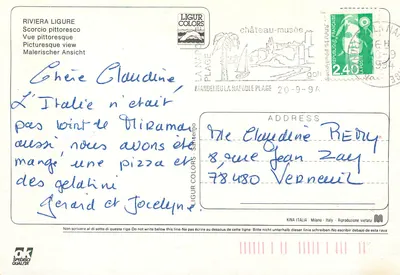 RIVIERA LIGURE
Scorcio pittoresco
Vue pittoresque
Picturesque view
Malerischer Ansicht
LIGUR
COLORS
Chère Claudine,
L'Italie n'était
pas loin de Miramas
aussi, nous avons été
mangé, une pizza et
des gelatini
Gérard et Jocelyne.
château-musée
MANDELIEU LA NAPOULE PLAGE
20-9-9
2,40
ADDRESS
Me Claudine REMY
8, rue Jean Zay
78480 Verneuil
LIGUR COLORS
KINA ITALIA - Milano - Italy Reproduzione vietata
Non scrivere al di sotto di questa riga Do not write below this line Ne pas écrire au dessous de cette ligne Bitte nicht unterhalb dieser linie schreiben No escribir debajo de esta raya